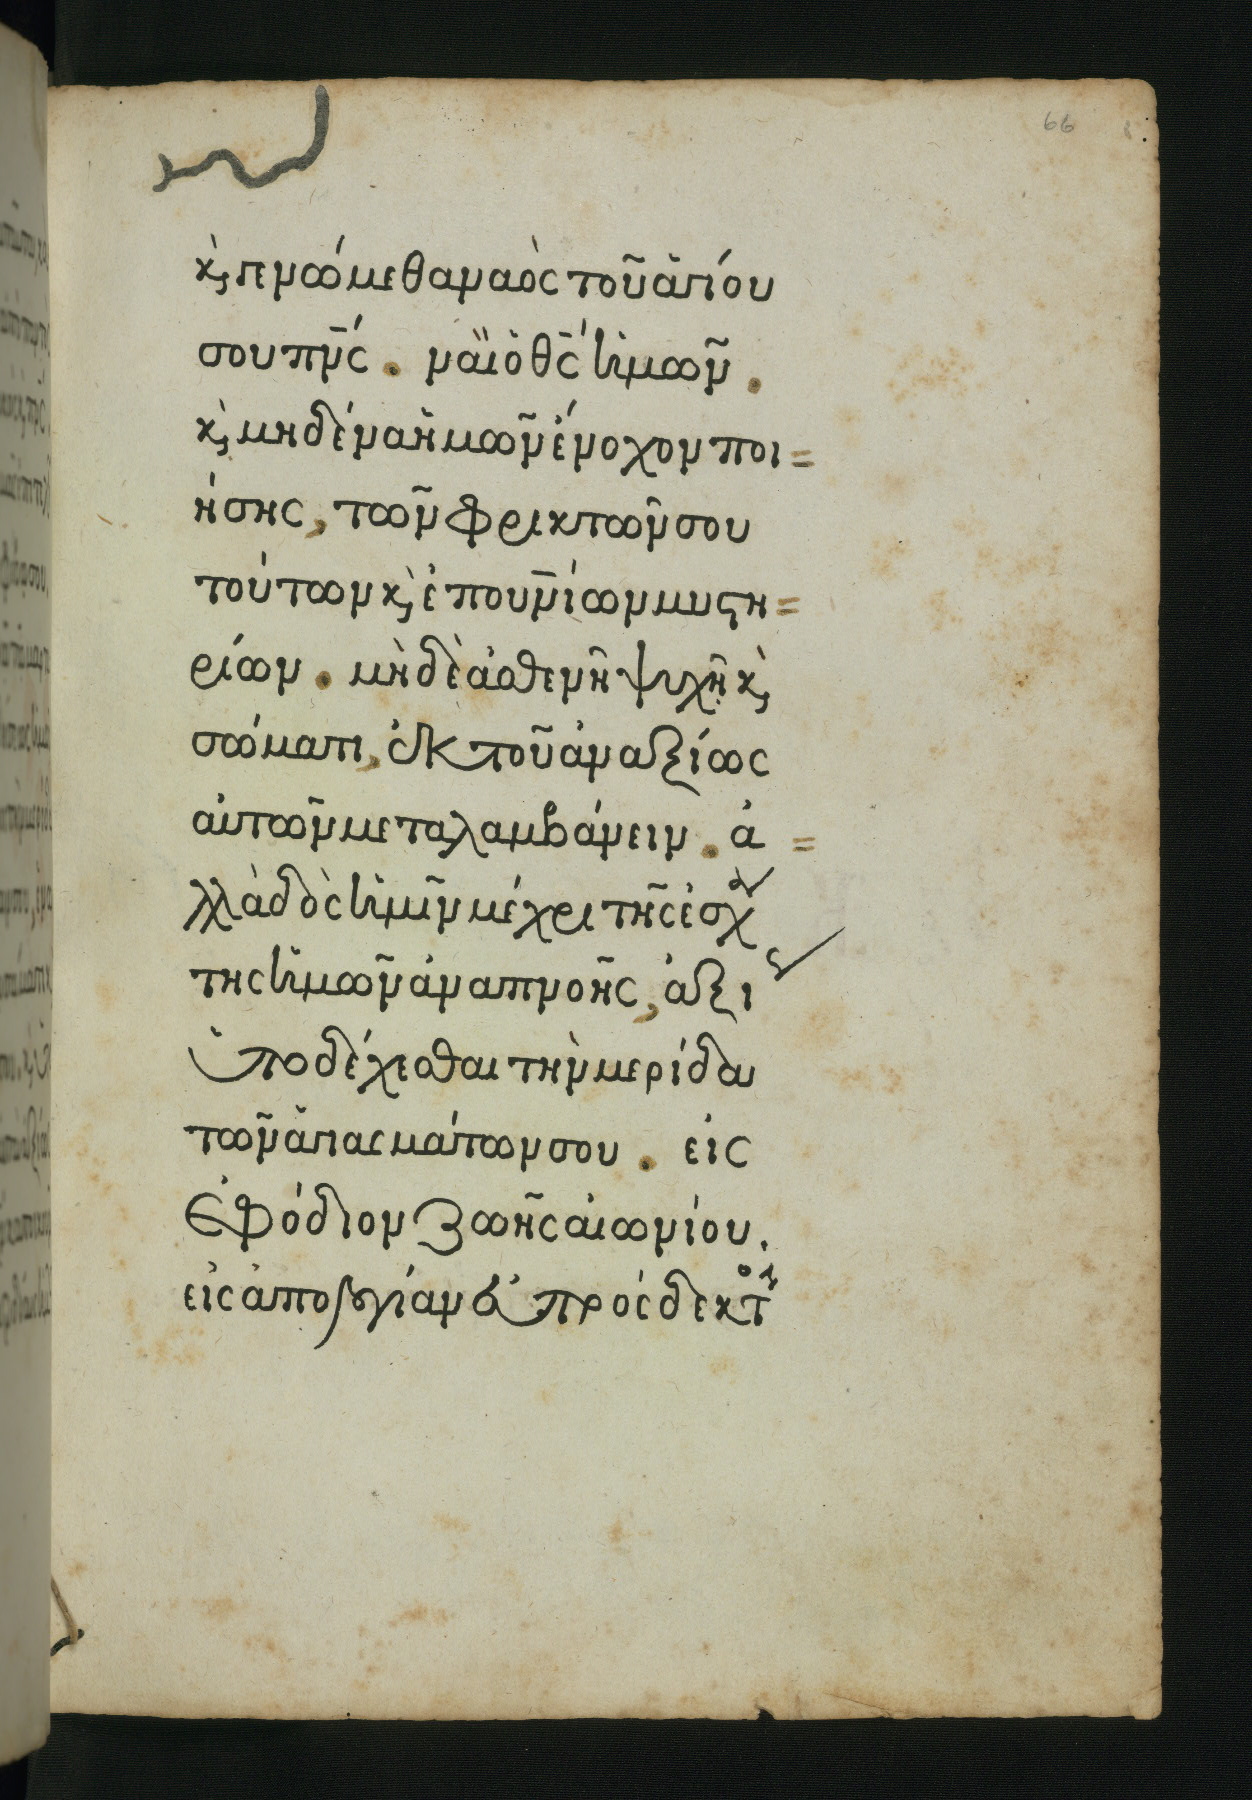 66
κ̀, γενώμεθα ναὸς τοῦ ἁγίου
σου πν̅ς́. ναὶ ὁ θς̅́ ἡμῶν.
κ̀, μηδένα ἡμῶν ἔνοχον ποι=
ήσης, τῶν φρικτῶν σου
τούτων κ̀, ἐπουν̅ίων μυστη=
ρίων. μὴ δὲ ἀσθενῆ ψυχῆ κ̀,
σώματι, ἐκ τοῦ ἀναξίως
αὐτῶν μεταλαμβάνειν. ἀ=
λλὰ δὸς ἡμῖν μέχρι τῆς ἐσχά
της ἡμῶν ἀναπνοῆς, ἀξίως
ὑποδέχεσθαι τὴν μερίδα
τῶν ἁγιασμάτων σου. εἰς
ἐφόδιον ζωῆς αἰωνίου.
εἰς ἀπολογίαν εὐπρόσδεκτον